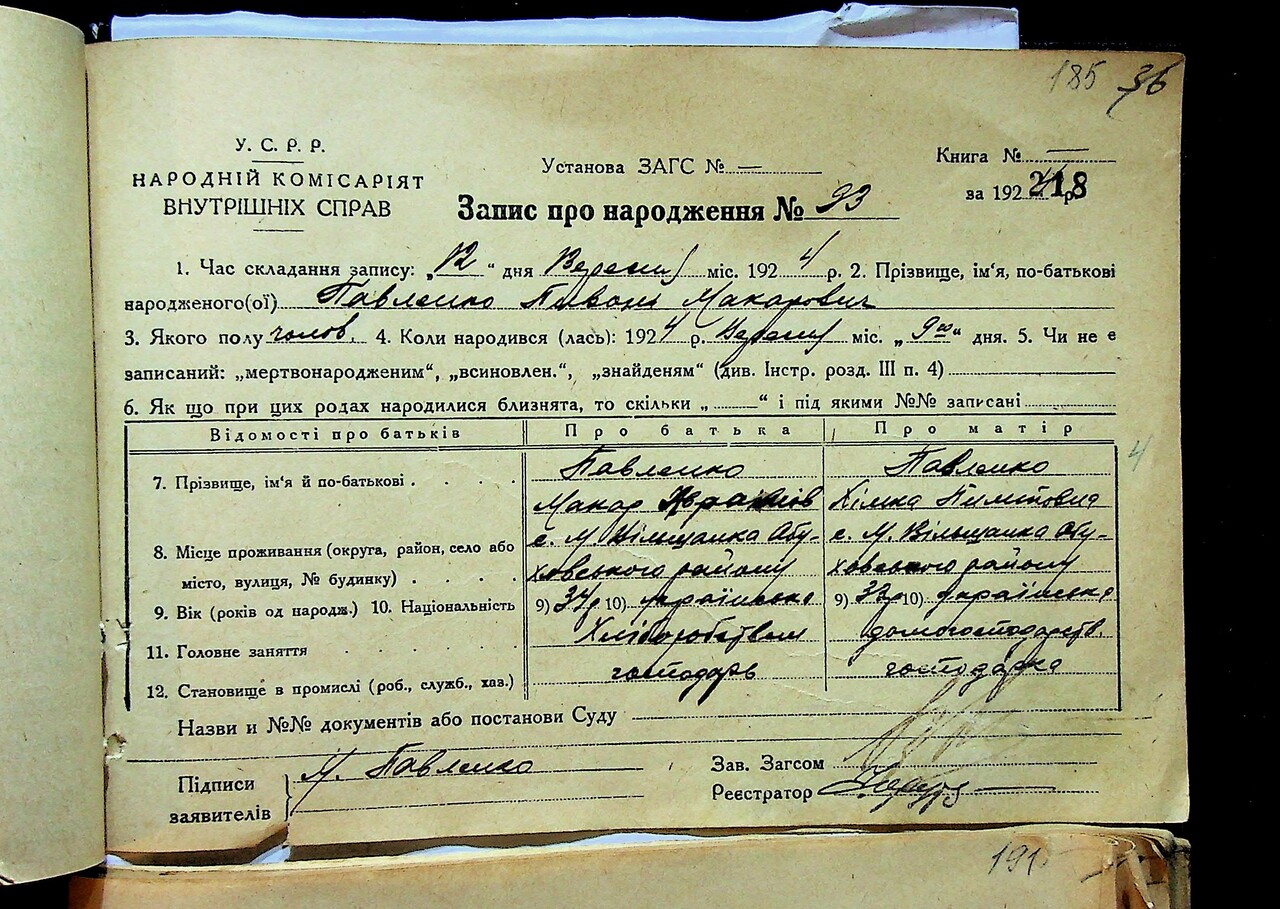 185 36
У. С. Р. Р.
НАРОДНІЙ КОМІСАРІЯТ
ВНУТРІШНІХ СПРАВ
Установа ЗАГС № —
Книга № —
за 1924 р.
218
Запис про народження № 93
1. Час складання запису: „12“ дня Вересня міс. 1924 р. 2. Прізвище, ім'я, по-батькові
народженого(ої) Павленко Пивонь Макарович
3. Якого полу чолов. 4. Коли народився (лась): 1924 р. Вересня міс. „9го“ дня. 5. Чи не є
записаний: „мертвонародженим“, „всиновлен.“, „знайденям“ (див. Інстр. розд. III п. 4)
6. Як що при цих родах народилися близнята, то скільки „ “ і під якими №№ записані
Відомості про батьків Про батька Про матір
4
7. Прізвище, ім'я й по-батькові . . . . Павленко Павленко
Макар Хімка Пилиповна
8. Місце проживання (округа, район, село або с. М. Вільщанка Обу- с. М. Вільщанка Обу-
місто, вулиця, № будинку) . . . . ховського району ховського району
9. Вік (років од народж.) 10. Національність 9) 37р 10) українська 9) 33р 10) українська
11. Головне заняття . . . . . Хліборобством домогосподарств.
12. Становище в промислі (роб., служб., хаз.) господарь господарка
Назви и №№ документів або постанови Суду
Підписи
заявителів
М. Павленко
Зав. Загсом
Реєстратор
191